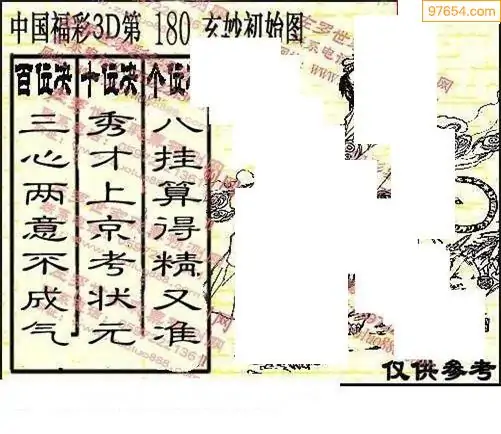 97654.com
中国福彩3D第 180 玄妙初始图
百位决
三心两意不成气
十位决
秀才上京考状元
个位决
八挂算得精又准
仅供参考